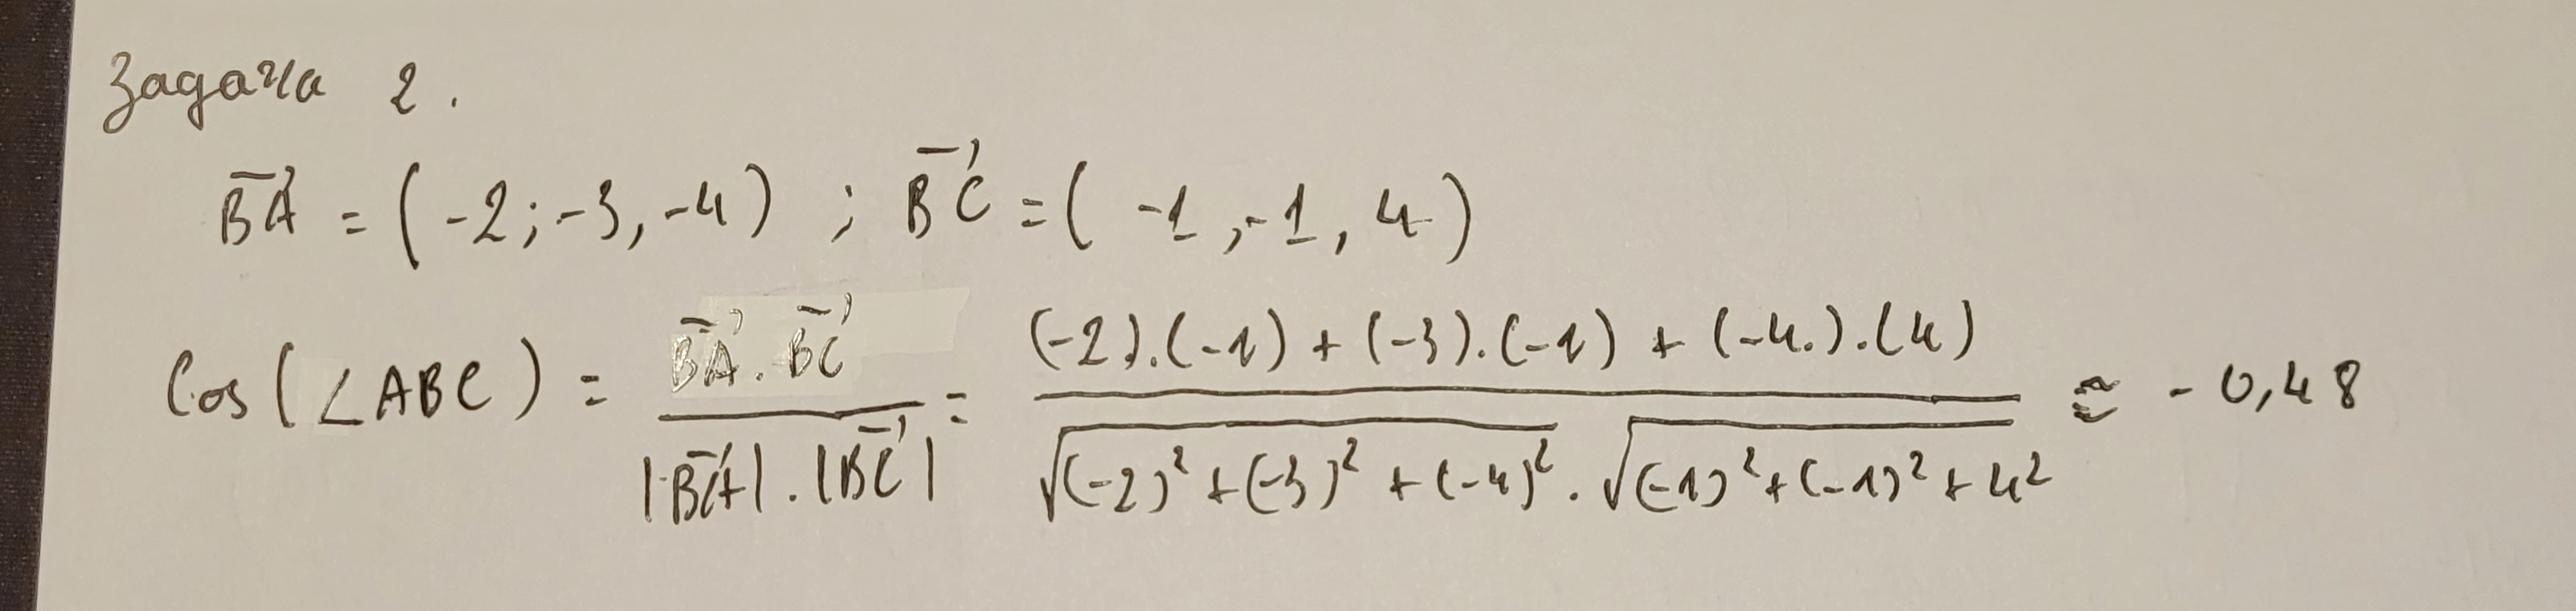 Задача 2.
BA = (-2; -3, -4) ; BC = ( -1, -1, 4 )
Cos(∠ABC) = BA . BC / |BA| . |BC| = (-2).(-1) + (-3).(-1) + (-4.).(4) / √(-2)² + (-3)² + (-4)² . √(-1)² + (-1)² + 4² ≅ - 0,48